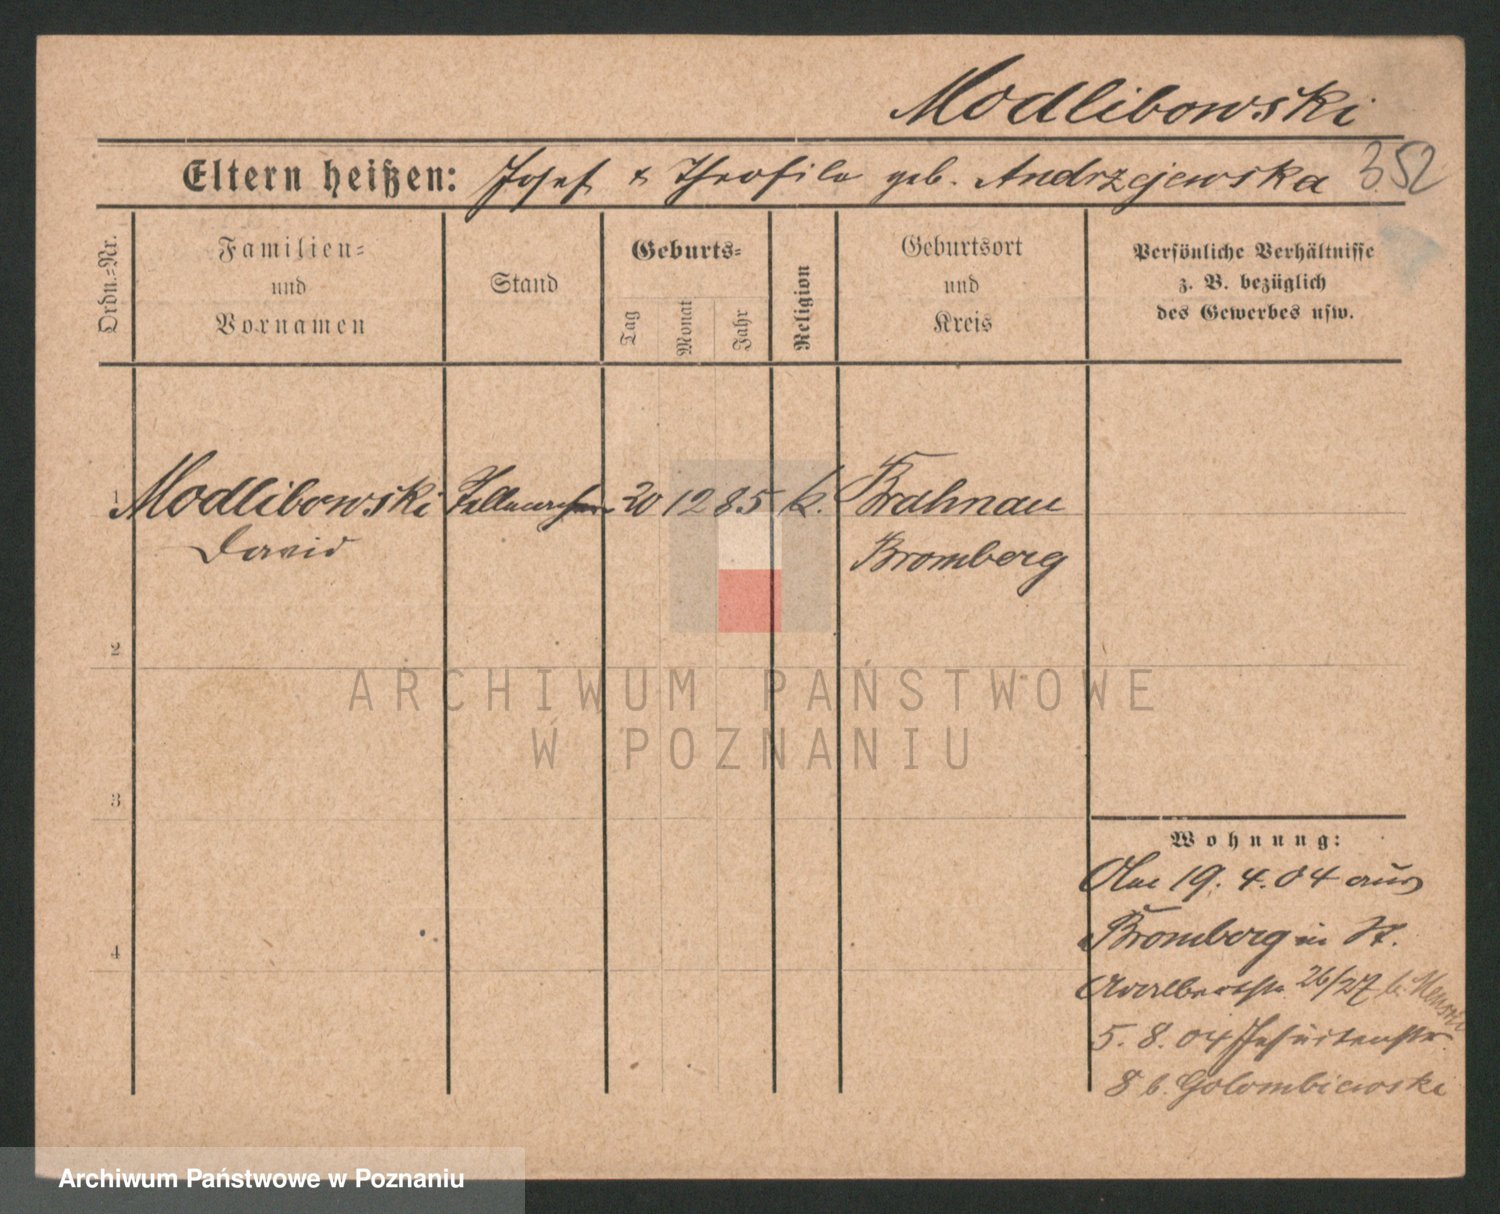 Modlibowski
Eltern heißen: Josef & Theofila geb. Andrzejewska 352
Ordn.-Nr.
Familien-
und
Vornamen
Stand
Geburts-
Tag
Monat
Jahr
Religion
Geburtsort
und
Kreis
Persönliche Verhältnisse
z. B. bezüglich
des Gewerbes usw.
1 Modlibowski 20 12 85 k. Brahnau
David Bromberg
2
ARCHIWUM PAŃSTWOWE
W POZNANIU
3
Wohnung:
Am 19. 4. 04 aus
4 Bromberg in St.
Adalbertstr. 26/27 b.
5. 8. 04 Jesuitenstr.
8 b. Golombiewski
Archiwum Państwowe w Poznaniu